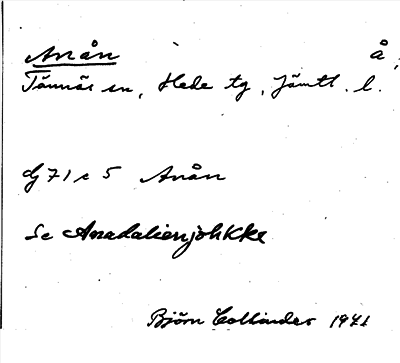 Anån å.
Tännäs sn, Hede tg, Jämtl. l.
dj 71 c 5 Anån
Se Anadalienjohkke
Björn Collinder 1971